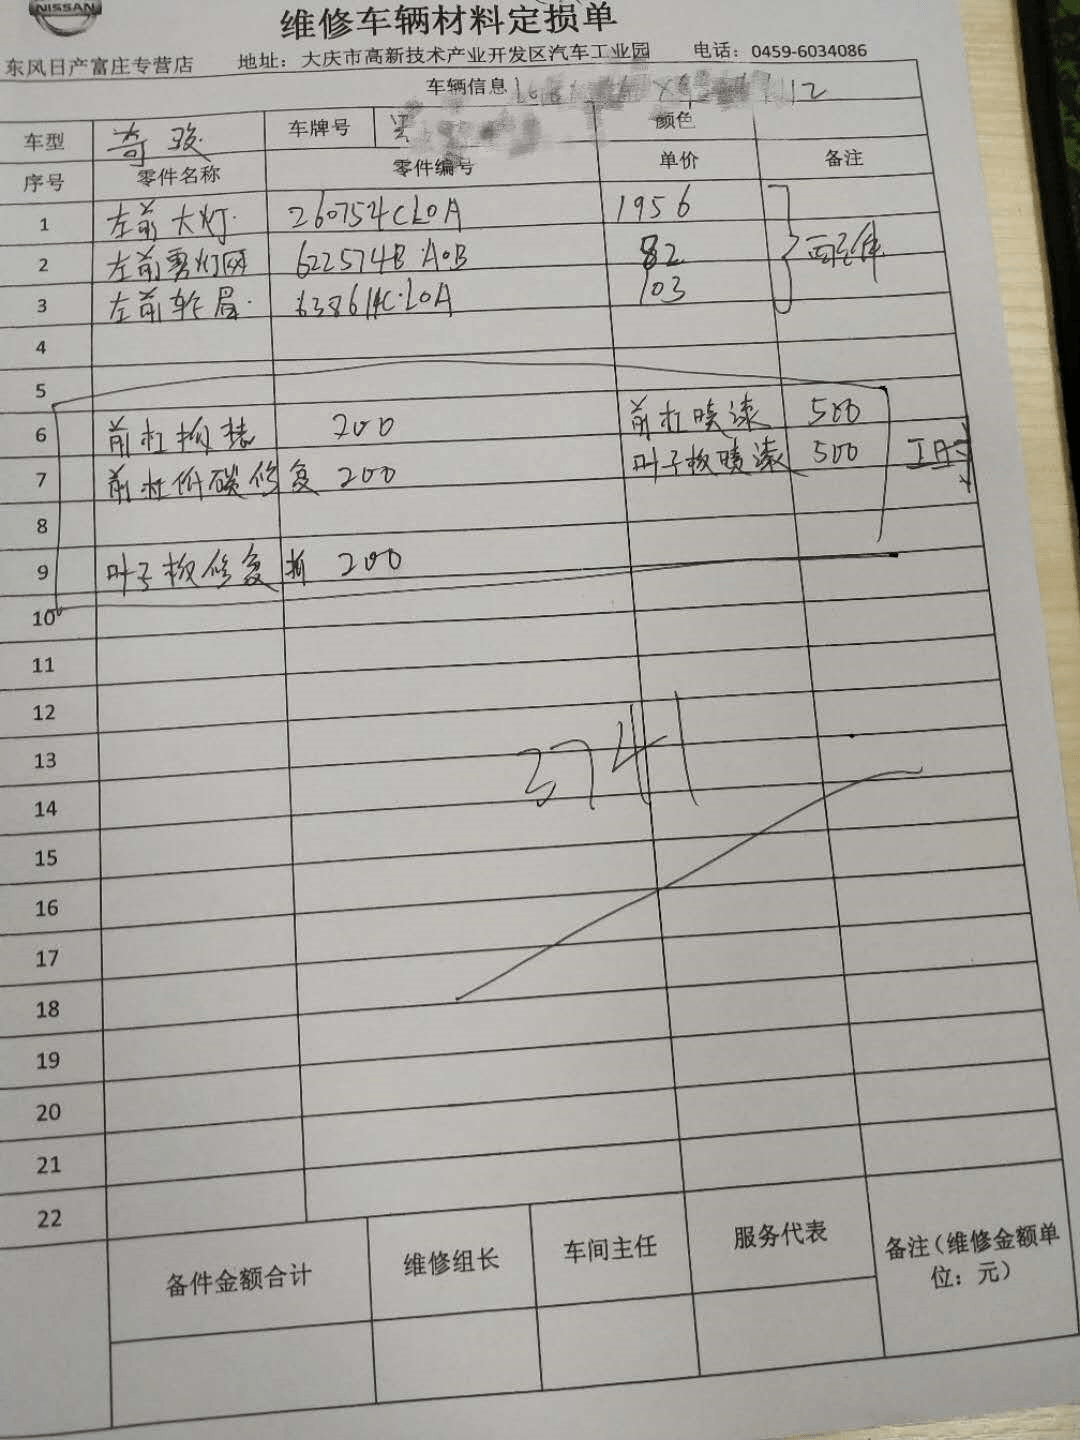 NISSAN
维修车辆材料定损单
东风日产富庄专营店 地址：大庆市高新技术产业开发区汽车工业园 电话：0459-6034086
车辆信息
车型 奇骏 车牌号 颜色
序号 零件名称 零件编号 单价 备注
1 左前大灯 260754CL0A 1956
2 左前雾灯网 622574B A0B 82
3 左前轮眉 638614CL0A 103
4
5
6 前杠拆装 200 前杠喷漆 500
7 前杠修复 200 叶子板喷漆 500 工时
8
9 叶子板修复 200
10
11
12
13 3741
14
15
16
17
18
19
20
21
22
备件金额合计 维修组长 车间主任 服务代表 备注（维修金额单位：元）